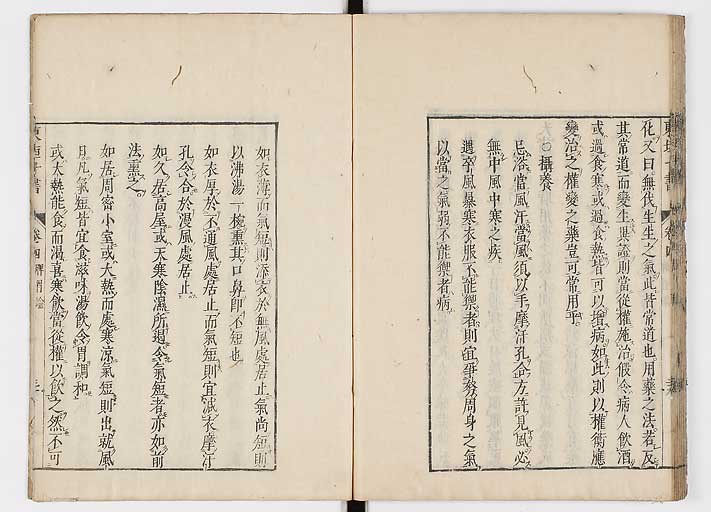 化又曰無代生生之氣此皆常道也用藥之法若反
其常道而變生異證則當從權施治假令病人飲酒
或過食寒或過食熱皆可以增病如此則以權衡應
變治之權變之藥豈可常用乎
攝養
忌浴當風汗當風須以手摩汗孔合方許見風必
無中風中寒之疾
遇卒風暴寒衣服不能禦者則宜爭努周身之氣
以當之氣弱不能禦者病
如衣薄而氣短則添衣於無風處居止氣尚短則
以沸湯一椀熏其口鼻即不短也
如衣厚於不通風處居止而氣短則宜減衣摩汗
孔令合於漫風處居止
如久居高屋或天寒陰濕所遏令氣短者亦如前
法熏之
如居周密小室或大熱而處寒涼氣短則出就風
日凡氣短皆宜食滋味湯飲令胃調和
或大熱能食而渴喜寒飲當從權以飲之然不可
卷四